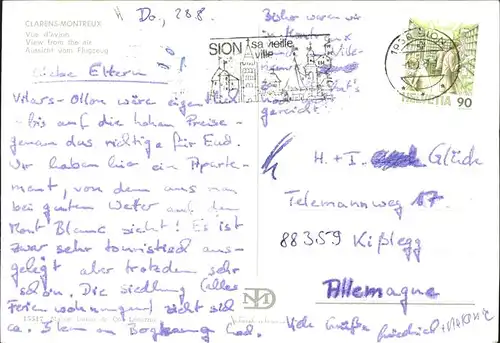 CLARENS-MONTREUX
Vue d'avion
View from the air
Aussicht vom Flugzeug
Do, 28.8.
Liebe Eltern
Villars-Ollon wäre eigentlich
- bis auf die hohen Preise -
genau das richtige für Euch.
Wir haben hier ein Aparte-
ment, von dem aus man
bei gutem Wetter auf den
Mont Blanc sieht! Es ist
zwar sehr touristisch aus-
gelegt aber trotzdem sehr
schön. Die Siedlung (alles
Ferienwohnungen) zieht sich
ca. 3 km am Berghang
Bisher waren wir
in
gereicht!
SION sa vieille
ville
1950 SION
HELVETIA 90
H. + I. Glück
Telemannweg 17
88359 Kißlegg
Allemagne
Viele Grüße Friedrich +